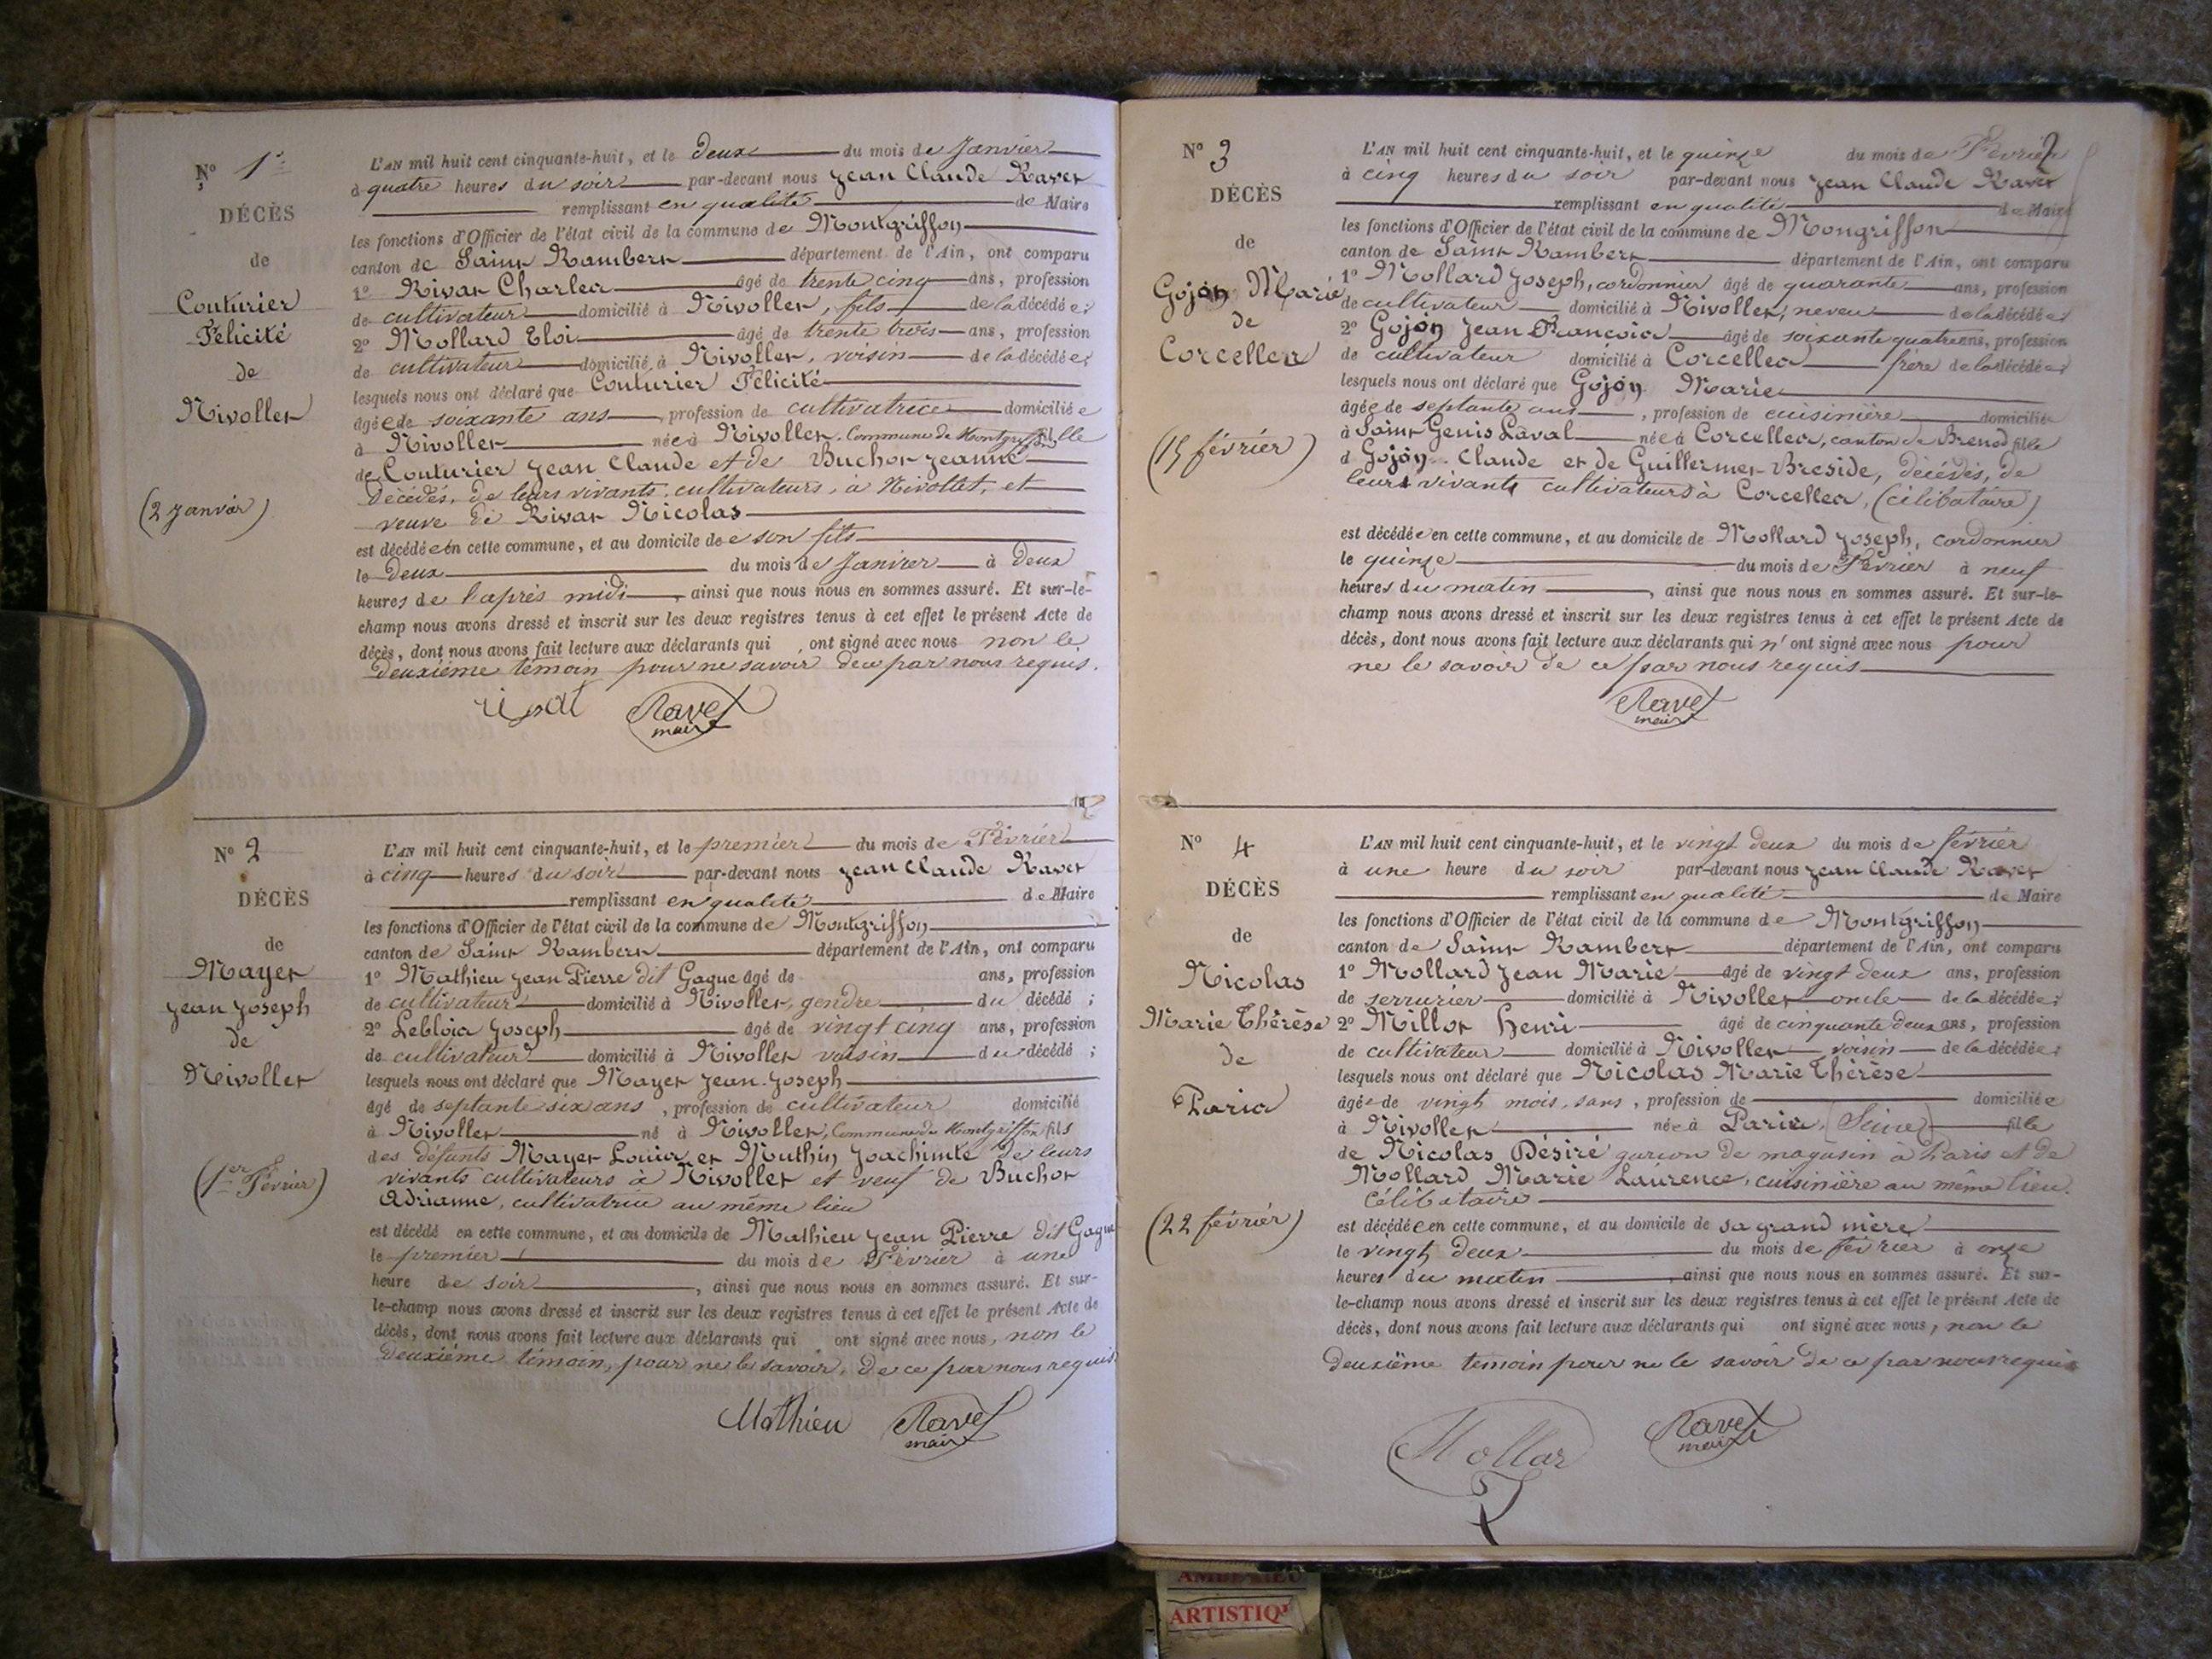 No 1er
DÉCÈS
de
Couturier
Félicité
de
Nivollet
(2 Janvier)
L'AN mil huit cent cinquante-huit, et le deux du mois de Janvier
à quatre heures du soir par-devant nous Jean Claude Ravet
remplissant en qualité de Maire
les fonctions d'Officier de l'état civil de la commune de Montgriffon
canton de Saint Rambert département de l'Ain, ont comparu
1o Rivat Charles âgé de trente cinq ans, profession
de cultivateur domicilié à Nivollet, fils de la décédée;
2o Mollard Eloi âgé de trente trois ans, profession
de cultivateur domicilié à Nivollet, voisin de la décédée;
lesquels nous ont déclaré que Couturier Félicité
âgée de soixante ans, profession de cultivatrice domiciliée
à Nivollet née à Nivollet, Commune de Montgriffon fille
de Couturier Jean Claude et de Buchot Jeanne
Décédés, de leurs vivants, cultivateurs, à Nivollet, et
veuve de Rivat Nicolas
est décédée en cette commune, et au domicile de son fils
le deux du mois de Janvier à deux
heures de l'après midi, ainsi que nous nous en sommes assuré. Et sur-le-
champ nous avons dressé et inscrit sur les deux registres tenus à cet effet le présent Acte de
décès, dont nous avons fait lecture aux déclarants qui, ont signé avec nous non le
deuxième témoin pour ne savoir de ce par nous requis.
rivat Ravet
maire
No 2
DÉCÈS
de
Mayet
Jean Joseph
de
Nivollet
(1er Février)
L'AN mil huit cent cinquante-huit, et le premier du mois de Février
à cinq heures du soir par-devant nous Jean Claude Ravet
remplissant en qualité de Maire
les fonctions d'Officier de l'état civil de la commune de Montgriffon
canton de Saint Rambert département de l'Ain, ont comparu
1o Mathieu Jean Pierre dit Gague âgé de ans, profession
de cultivateur domicilié à Nivollet, gendre du décédé;
2o Leblois Joseph âgé de vingt cinq ans, profession
de cultivateur domicilié à Nivollet voisin du décédé;
lesquels nous ont déclaré que Mayet Jean-Joseph
âgé de septante six ans, profession de cultivateur domicilié
à Nivollet né à Nivollet, Commune de Montgriffon fils
des défunts Mayet Louis et Muthin Joachimte de leurs
vivants cultivateurs à Nivollet et veuf de Buchot
Adrianne, cultivatrice au même lieu
est décédé en cette commune, et au domicile de Mathieu Jean Pierre dit Gague
le premier du mois de Février à une
heure de soir, ainsi que nous nous en sommes assuré. Et sur-
le-champ nous avons dressé et inscrit sur les deux registres tenus à cet effet le présent Acte de
décès, dont nous avons fait lecture aux déclarants qui ont signé avec nous, non le
deuxième témoin, pour ne le savoir, de ce par nous requis
Mathieu Ravet
maire
2
No 3
DÉCÈS
de
Gojon Marie
de
Corcelles
(15 février)
L'AN mil huit cent cinquante-huit, et le quinze du mois de Février
à cinq heures du soir par-devant nous Jean Claude Ravet
remplissant en qualité de Maire
les fonctions d'Officier de l'état civil de la commune de Mongriffon
canton de Saint Rambert département de l'Ain, ont comparu
1o Mollard Joseph, cordonnier âgé de quarante ans, profession
de cultivateur domicilié à Nivollet, neveu de la décédée;
2o Gojon Jean François âgé de soixante quatre ans, profession
de cultivateur domicilié à Corcelles frère de la décédée;
lesquels nous ont déclaré que Gojon Marie
âgée de septante ans, profession de cuisinière domiciliée
à Saint Genis Laval née à Corcelles, canton de Brenod fille
d Gojon Claude et de Guillermet Breside, décédés, de
leurs vivants cultivateurs à Corcelles, (célibataire)
est décédée en cette commune, et au domicile de Mollard Joseph, cordonnier
le quinze du mois de Février à neuf
heures du matin, ainsi que nous nous en sommes assuré. Et sur-le-
champ nous avons dressé et inscrit sur les deux registres tenus à cet effet le présent Acte de
décès, dont nous avons fait lecture aux déclarants qui n'ont signé avec nous pour
ne le savoir de ce par nous requis
Ravet
maire
No 4
DÉCÈS
de
Nicolas
Marie Thérèse
de
Paris
(22 février)
L'AN mil huit cent cinquante-huit, et le vingt deux du mois de février
à une heure du soir par-devant nous Jean Claude Ravet
remplissant en qualité de Maire
les fonctions d'Officier de l'état civil de la commune de Montgriffon
canton de Saint Rambert département de l'Ain, ont comparu
1o Mollard Jean Marie âgé de vingt deux ans, profession
de serrurier domicilié à Nivollet oncle de la décédée;
2o Millot Henri âgé de cinquante deux ans, profession
de cultivateur domicilié à Nivollet voisin de la décédée;
lesquels nous ont déclaré que Nicolas Marie Thérèse
âgée de vingt mois, sans, profession de domiciliée
à Nivollet née à Paris, (Seine) fille
de Nicolas Désiré garçon de magasin à Paris et de
Mollard Marie Laurence, cuisinière au même lieu.
célibataire
est décédée en cette commune, et au domicile de sa grand mère
le vingt deux du mois de février à onze
heures du matin, ainsi que nous nous en sommes assuré. Et sur-
le-champ nous avons dressé et inscrit sur les deux registres tenus à cet effet le présent Acte de
décès, dont nous avons fait lecture aux déclarants qui ont signé avec nous, non le
deuxième temoin pour ne le savoir de ce par nous requis
Mollar Ravet
maire
AMBERIEU
ARTISTIQ